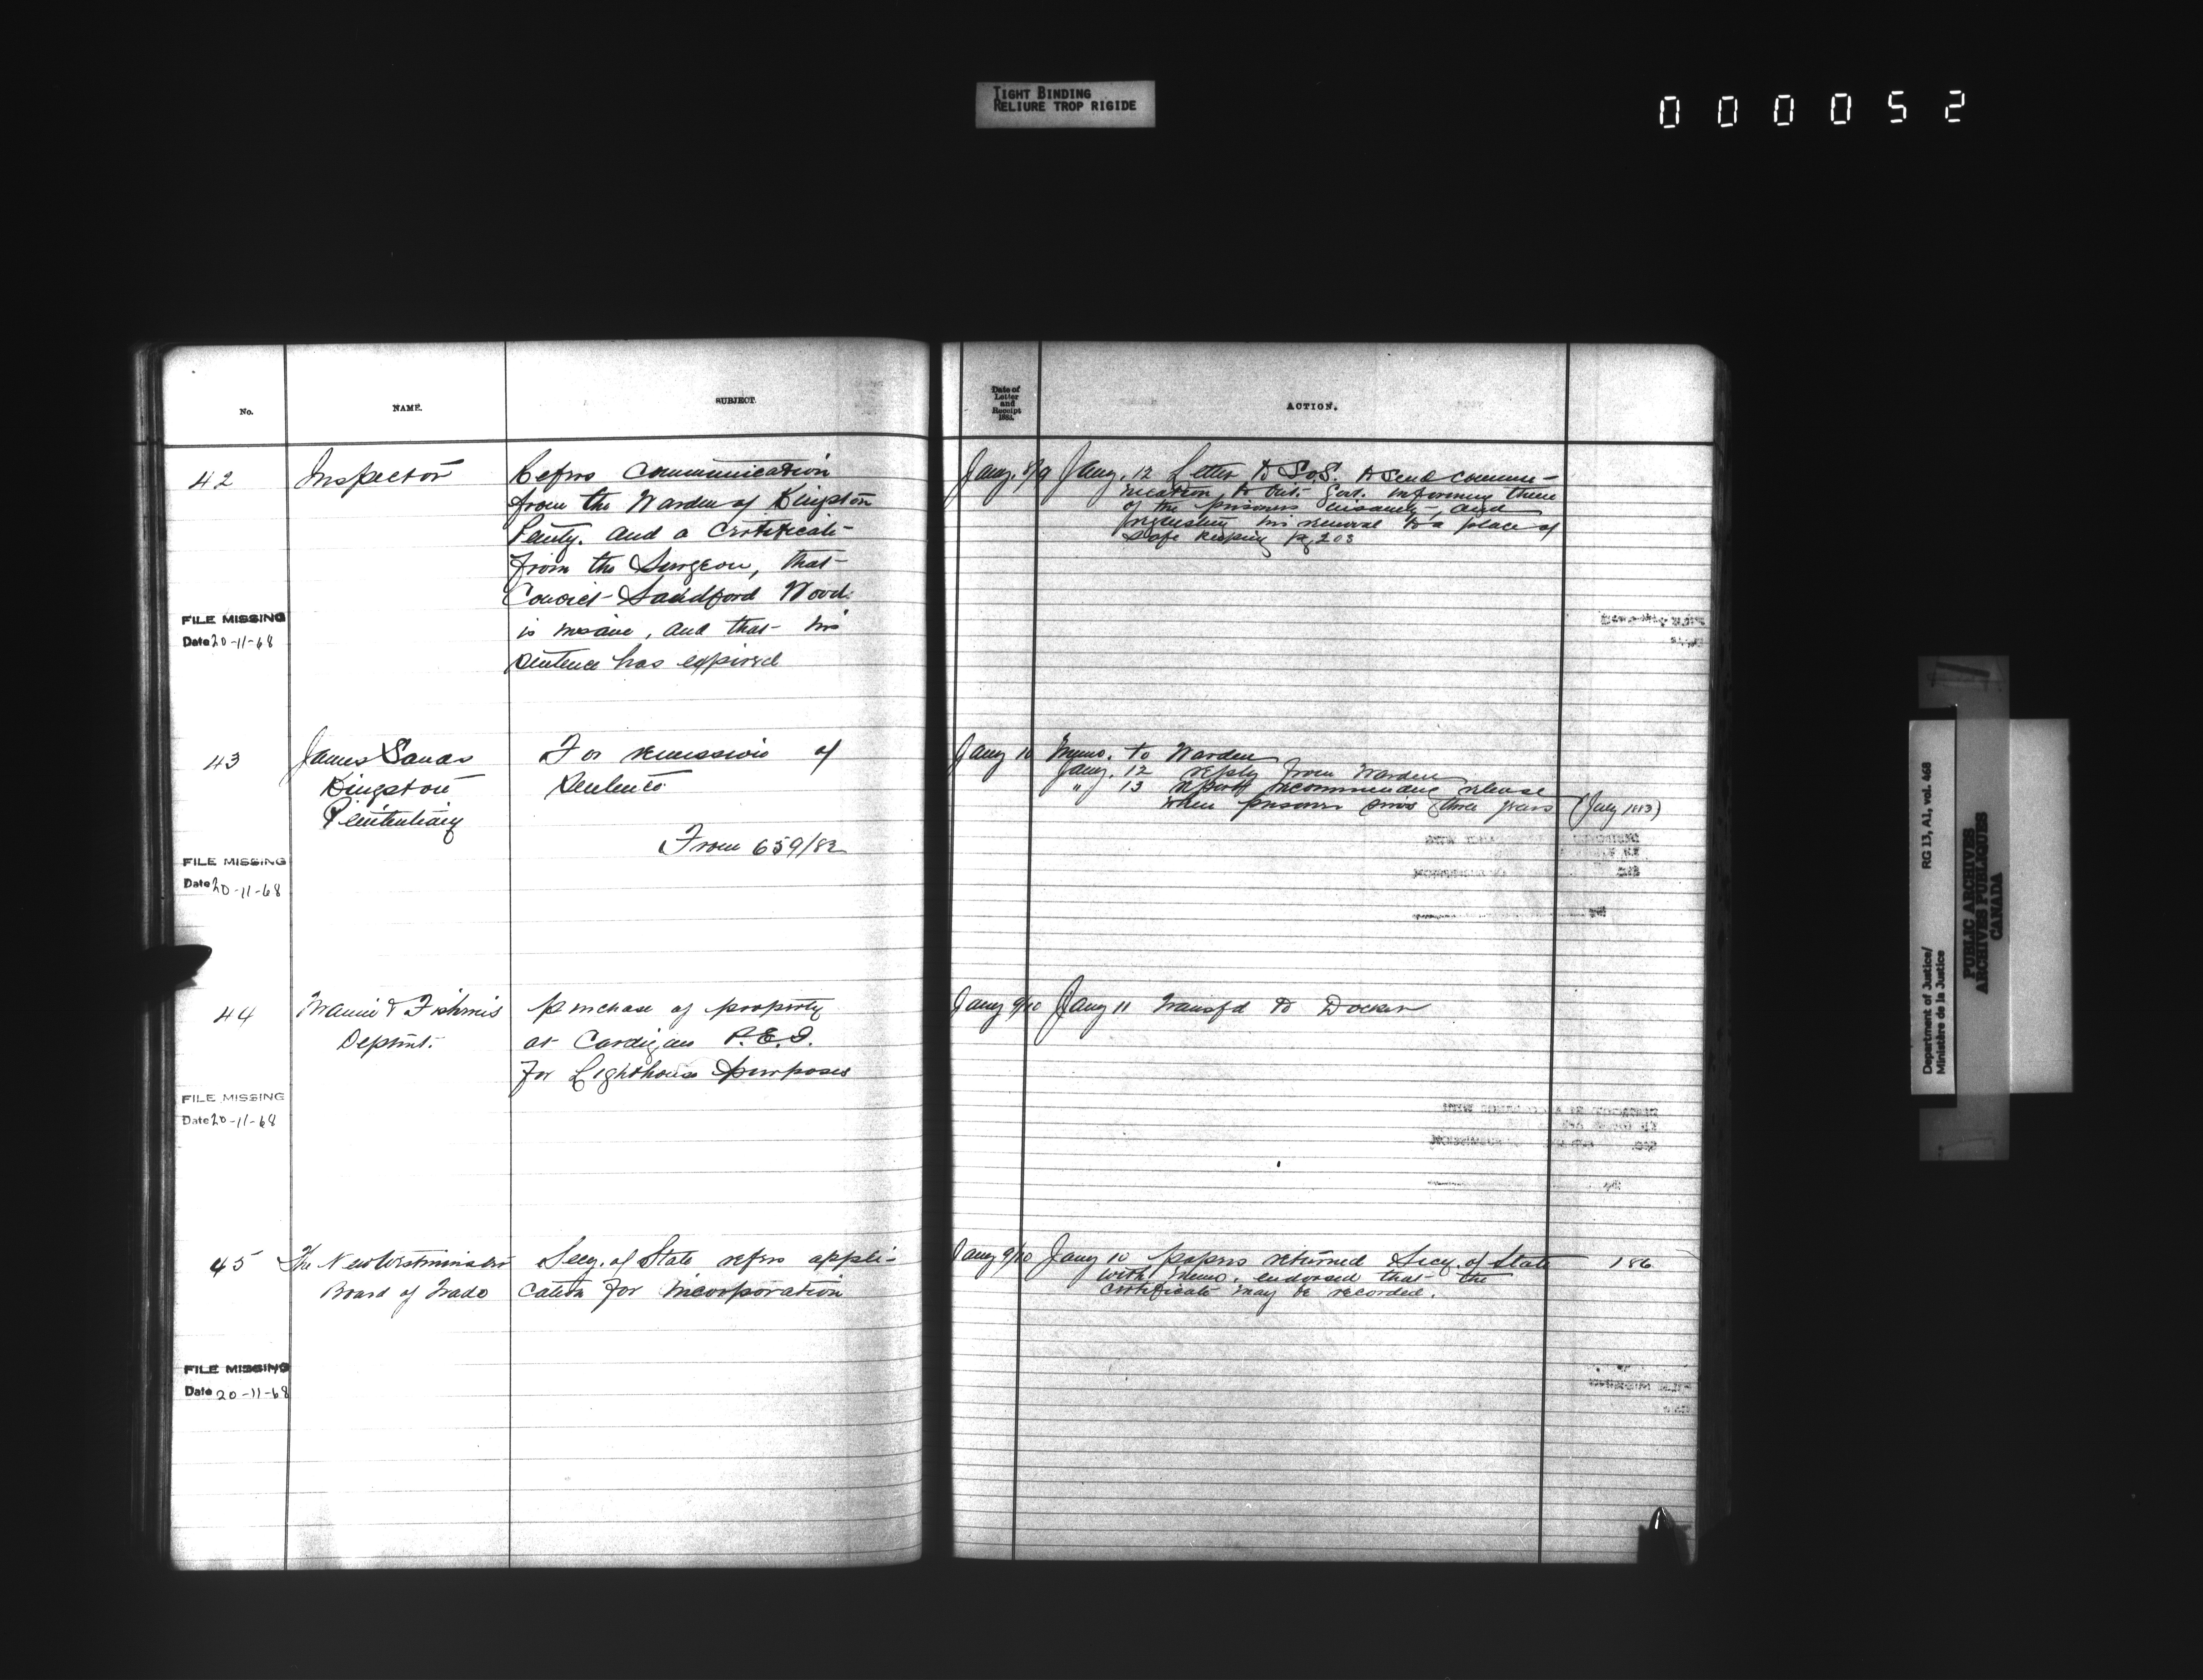 TIGHT BINDING
RELIURE TROP RIGIDE
000052
No.
NAME.
SUBJECT.
42
Inspector
Refers Communication
from the Warden of Kingston
Penty. and a Certificate
from the Surgeon, that
Convict Sandford Wood
is insane, and that his
sentence has expired
FILE MISSING
Date 20-11-68
43
James
Kingston
Penitentiary
For remission of
Sentence
From 659/82
FILE MISSING
Date 20-11-68
44
Marine & Fisheries
Deptmt.
purchase of property
at Cardigan P.E.I.
for Lighthouse purposes
FILE MISSING
Date 20-11-68
45
The New Westminster
Board of Trade
Secy. of State refers appli-
cation for incorporation
FILE MISSING
Date 20-11-68
Date of
Letter
and
Receipt
ACTION.
Jany. 8/9 Jany. 12 Letter to S.o.S. to send commu-
nication to Ont. Govt. informing them
of the prisoners insanity, and
requesting his removal to a place of
safe keeping pg. 203
Jany 10 Memo. to Warden
Jany. 12 reply from Warden
" 13 report recommending release
when prisoner serves three years (July 1883)
Jany 9/10 Jany 11 transfd to Docket
Jany 9/10 Jany 10 papers returned Secy. of State 186
with memo. endorsed that the
certificate may be recorded.
Department of Justice/ RG 13, A1, vol. 468
Ministère de la Justice
PUBLIC ARCHIVES
ARCHIVES PUBLIQUES
CANADA